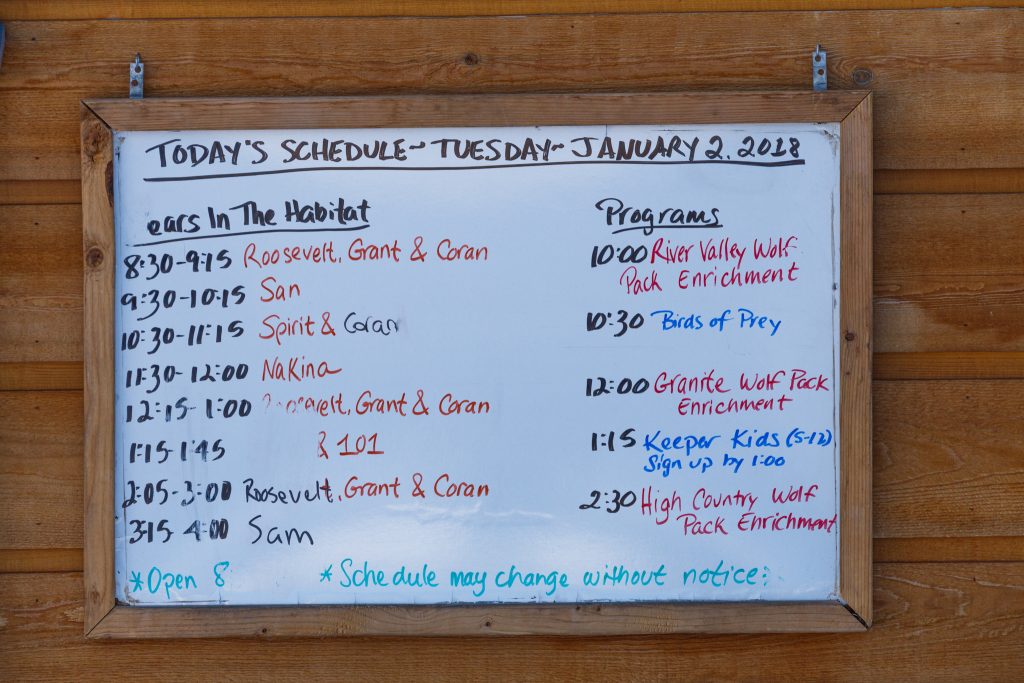 TODAY'S SCHEDULE~ TUESDAY~ JANUARY 2, 2018
ears In The Habitat
8:30-9:15 Roosevelt, Grant & Coran
9:30-10:15 San
10:30-11:15 Spirit & Coran
11:30-12:00 Nakina
12:15-1:00 Roosevelt, Grant & Coran
1:15-1:45 & 101
2:05-3:00 Roosevelt, Grant & Coran
3:15-4:00 Sam
Programs
10:00 River Valley Wolf
Pack Enrichment
10:30 Birds of Prey
12:00 Granite Wolf Pack
Enrichment
1:15 Keeper Kids (5-12)
Sign up by 1:00
2:30 High Country Wolf
Pack Enrichment
*Open 8
*Schedule may change without notice: